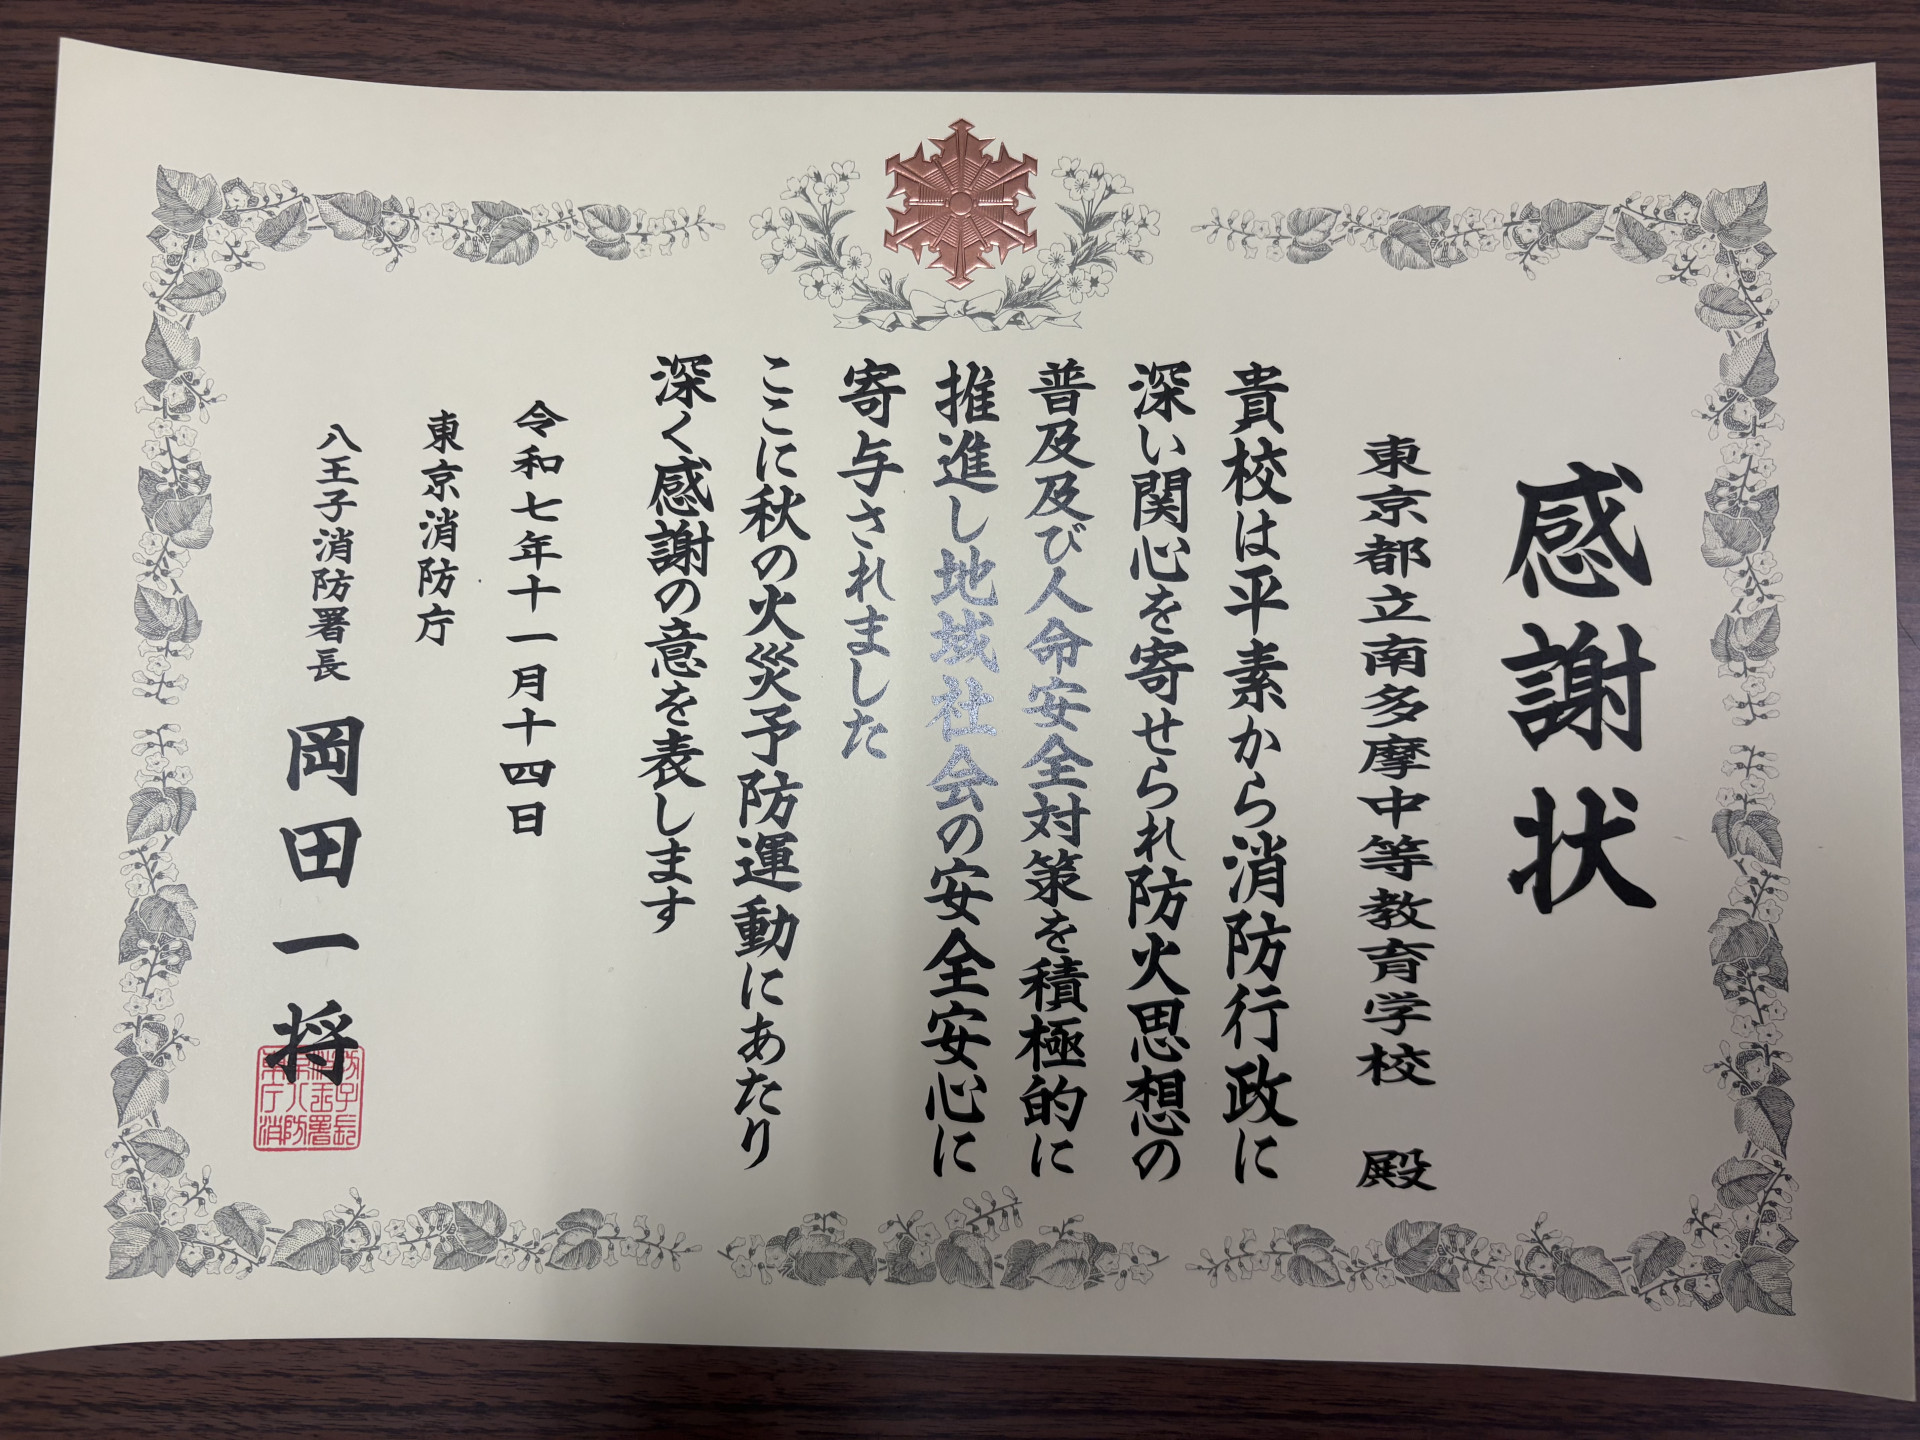 感謝状
東京都立南多摩中等教育学校 殿
貴校は平素から消防行政に
深い関心を寄せられ防火思想の
普及及び人命安全対策を積極的に
推進し地域社会の安全安心に
寄与されました
ここに秋の火災予防運動にあたり
深く感謝の意を表します
令和七年十一月十四日
東京消防庁
八王子消防署長 岡田一将